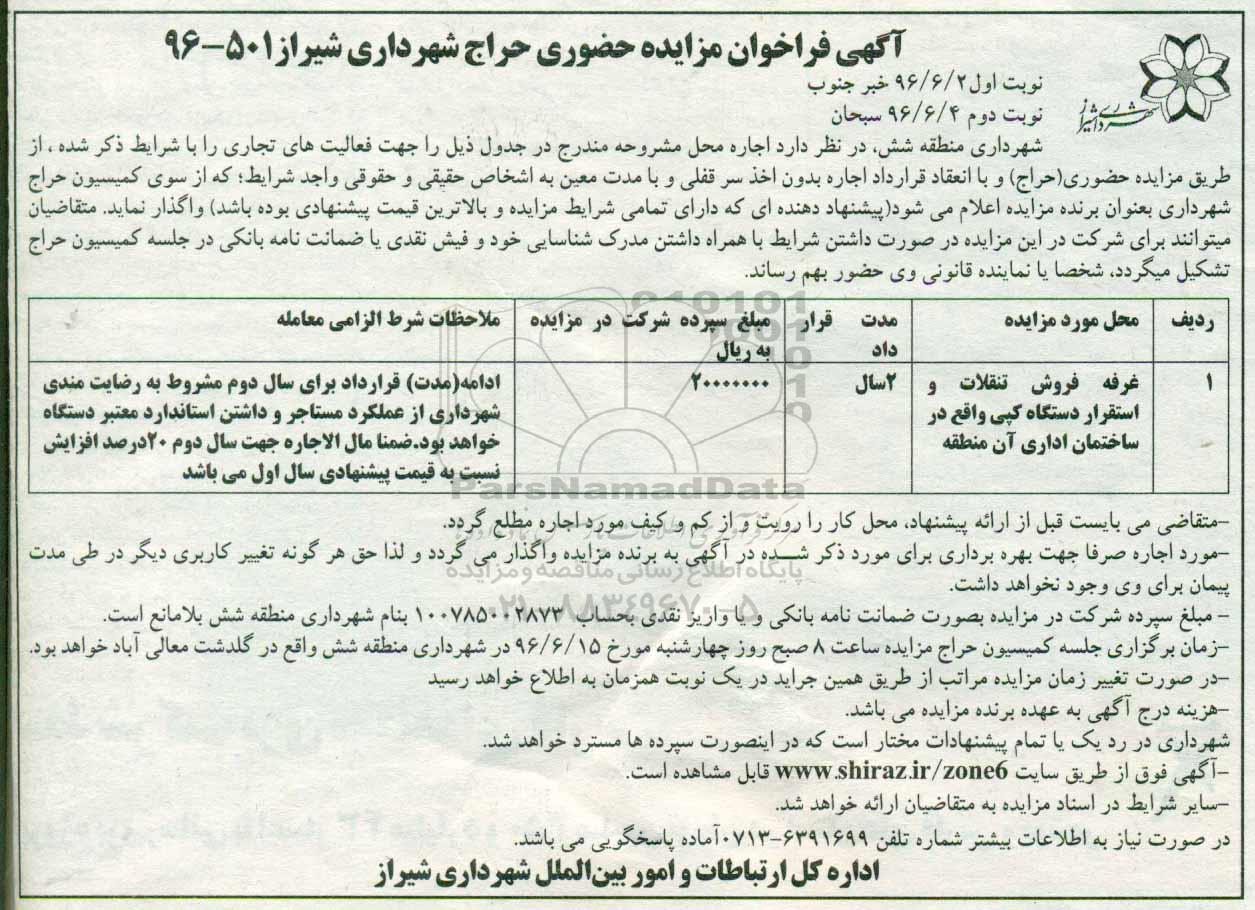 آگهی فراخوان مزایده حضوری حراج شهرداری شیراز ۵۰۱-۹۶
شهرداری شیراز
نوبت اول ۹۶/۶/۲ خبر جنوب
نوبت دوم ۹۶/۶/۴ سبحان
شهرداری منطقه شش، در نظر دارد اجاره محل مشروحه مندرج در جدول ذیل را جهت فعالیت های تجاری را با شرایط ذکر شده ، از
طریق مزایده حضوری(حراج) و با انعقاد قرارداد اجاره بدون اخذ سر قفلی و با مدت معین به اشخاص حقیقی و حقوقی واجد شرایط؛ که از سوی کمیسیون حراج
شهرداری بعنوان برنده مزایده اعلام می شود(پیشنهاد دهنده ای که دارای تمامی شرایط مزایده و بالاترین قیمت پیشنهادی بوده باشد) واگذار نماید. متقاضیان
میتوانند برای شرکت در این مزایده در صورت داشتن شرایط با همراه داشتن مدرک شناسایی خود و فیش نقدی یا ضمانت نامه بانکی در جلسه کمیسیون حراج
تشکیل میگردد، شخصا یا نماینده قانونی وی حضور بهم رساند.
ردیف
محل مورد مزایده
مدت قرار
داد
مبلغ سپرده شرکت در مزایده
به ریال
ملاحظات شرط الزامی معامله
۱
غرفه فروش تنقلات و
استقرار دستگاه کپی واقع در
ساختمان اداری آن منطقه
۲سال
۲۰۰۰۰۰۰۰
ادامه(مدت) قرارداد برای سال دوم مشروط به رضایت مندی
شهرداری از عملکرد مستاجر و داشتن استاندارد معتبر دستگاه
خواهد بود.ضمنا مال الاجاره جهت سال دوم ۲۰درصد افزایش
نسبت به قیمت پیشنهادی سال اول می باشد
ParsNamadData
-متقاضی می بایست قبل از ارائه پیشنهاد، محل کار را رویت و از کم و کیف مورد اجاره مطلع گردد.
-مورد اجاره صرفا جهت بهره برداری برای مورد ذکر شده در آگهی به برنده مزایده واگذار می گردد و لذا حق هر گونه تغییر کاربری دیگر در طی مدت
پایگاه اطلاع رسانی مناقصه و مزایده
پیمان برای وی وجود نخواهد داشت.
۰۲۱-۸۸۳۴۹۶۷۰-۵
- مبلغ سپرده شرکت در مزایده بصورت ضمانت نامه بانکی و یا واریز نقدی بحساب ۱۰۰۷۸۵۰۰۲۸۷۳ بنام شهرداری منطقه شش بلامانع است.
-زمان برگزاری جلسه کمیسیون حراج مزایده ساعت ۸ صبح روز چهارشنبه مورخ ۹۶/۶/۱۵ در شهرداری منطقه شش واقع در گلدشت معالی آباد خواهد بود.
-در صورت تغییر زمان مزایده مراتب از طریق همین جراید در یک نوبت همزمان به اطلاع خواهد رسید
-هزینه درج آگهی به عهده برنده مزایده می باشد.
شهرداری در رد یک یا تمام پیشنهادات مختار است که در اینصورت سپرده ها مسترد خواهد شد.
-آگهی فوق از طریق سایت www.shiraz.ir/zone6 قابل مشاهده است.
-سایر شرایط در اسناد مزایده به متقاضیان ارائه خواهد شد.
در صورت نیاز به اطلاعات بیشتر شماره تلفن ۶۳۹۱۶۹۹-۰۷۱۳آماده پاسخگویی می باشد.
اداره کل ارتباطات و امور بین‌الملل شهرداری شیراز